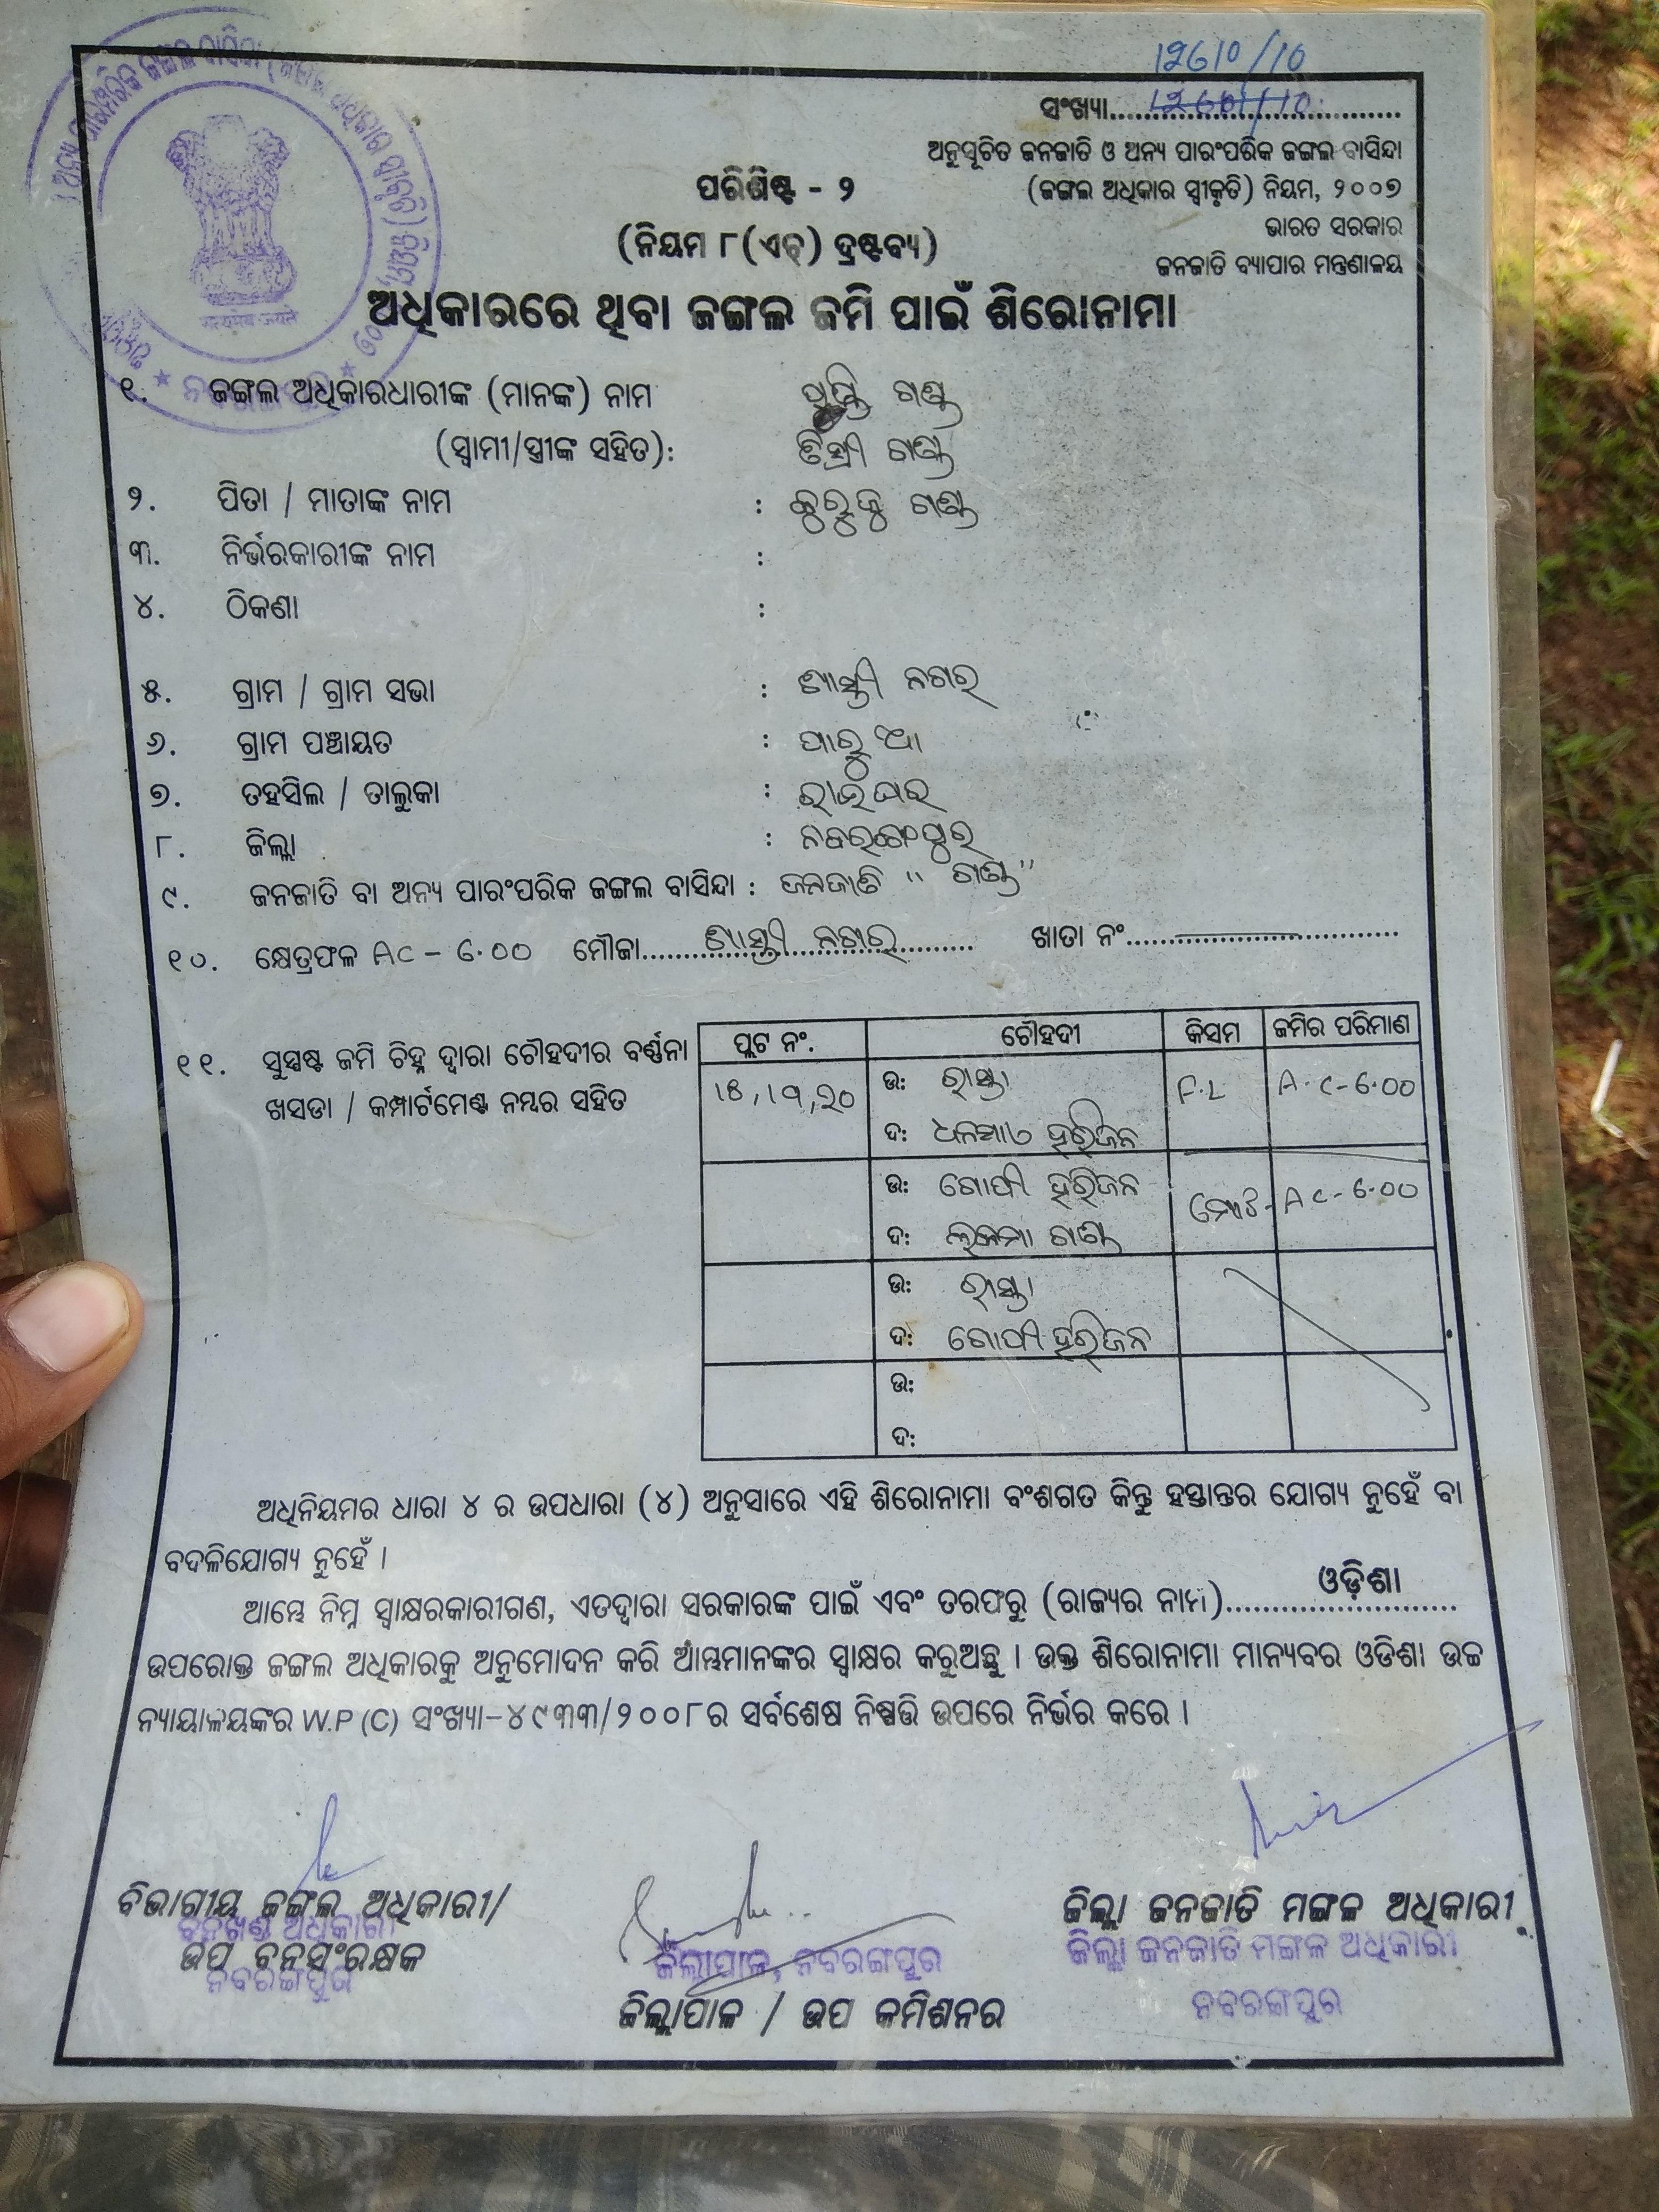 ୧୨୬୧୦/୧୦
ସଂଖ୍ୟା
ଅନୁସୂଚିତ ଜନଜାତି ଓ ଅନ୍ୟ ପାରଂପରିକ ଜଙ୍ଗଲ ବାସିନ୍ଦା
(ଜଙ୍ଗଲ ଅଧିକାର ସ୍ୱୀକୃତି) ନିୟମ, ୨୦୦୭
ଭାରତ ସରକାର
ଜନଜାତି ବ୍ୟାପାର ମନ୍ତ୍ରଣାଳୟ
ପରିଶିଷ୍ଟ - ୨
(ନିୟମ ୮(ଏଚ୍) ଦ୍ରଷ୍ଟବ୍ୟ)
सत्यमेव जयते
ଅଧିକାରରେ ଥିବା ଜଙ୍ଗଲ ଜମି ପାଇଁ ଶିରୋନାମା
୧. ଜଙ୍ଗଲ ଅଧିକାରଧାରୀଙ୍କ (ମାନଙ୍କ) ନାମ ଗଣ୍ଡ
(ସ୍ୱାମୀ/ସ୍ତ୍ରୀଙ୍କ ସହିତ): ଗଣ୍ଡ
୨. ପିତା / ମାତାଙ୍କ ନାମ : ଗଣ୍ଡ
୩. ନିର୍ଭରକାରୀଙ୍କ ନାମ :
୪. ଠିକଣା :
୫. ଗ୍ରାମ / ଗ୍ରାମ ସଭା : ଶାସ୍ତ୍ରୀ ନଗର
୬. ଗ୍ରାମ ପଞ୍ଚାୟତ :
୭. ତହସିଲ / ତାଲୁକା : ରାଇଘର
୮. ଜିଲ୍ଲା : ନବରଙ୍ଗପୁର
୯. ଜନଜାତି ବା ଅନ୍ୟ ପାରଂପରିକ ଜଙ୍ଗଲ ବାସିନ୍ଦା : ଜନଜାତି "ଗଣ୍ଡ"
୧୦. କ୍ଷେତ୍ରଫଳ AC - 6.00 ମୌଜା ଶାସ୍ତ୍ରୀ ନଗର ଖାତା ନଂ
୧୧. ସୁସ୍ପଷ୍ଟ ଜମି ଚିହ୍ନ ଦ୍ୱାରା ଚୌହଦୀର ବର୍ଣ୍ଣନା
ଖସଡା / କମ୍ପାର୍ଟମେଣ୍ଟ ନମ୍ବର ସହିତ
ପ୍ଲଟ ନଂ. ଚୌହଦୀ କିସମ ଜମିର ପରିମାଣ
ଉ: ରାସ୍ତା F.L A.C-6.00
ଦ: ହରିଜନ
ଉ: ଗୋପୀ ହରିଜନ ମୋଟ- AC-6.00
ଦ: ଗଣ୍ଡ
ଉ: ରାସ୍ତା
ଦ: ଗୋପୀ ହରିଜନ
ଉ:
ଦ:
ଅଧିନିୟମର ଧାରା ୪ ର ଉପଧାରା (୪) ଅନୁସାରେ ଏହି ଶିରୋନାମା ବଂଶଗତ କିନ୍ତୁ ହସ୍ତାନ୍ତର ଯୋଗ୍ୟ ନୁହେଁ ବା
ବଦଳିଯୋଗ୍ୟ ନୁହେଁ ।
ଆମ୍ଭେ ନିମ୍ନ ସ୍ୱାକ୍ଷରକାରୀଗଣ, ଏତଦ୍ୱାରା ସରକାରଙ୍କ ପାଇଁ ଏବଂ ତରଫରୁ (ରାଜ୍ୟର ନାମ) ଓଡ଼ିଶା
ଉପରୋକ୍ତ ଜଙ୍ଗଲ ଅଧିକାରକୁ ଅନୁମୋଦନ କରି ଆମ୍ଭମାନଙ୍କର ସ୍ୱାକ୍ଷର କରୁଅଛୁ । ଉକ୍ତ ଶିରୋନାମା ମାନ୍ୟବର ଓଡିଶା ଉଚ୍ଚ
ନ୍ୟାୟାଳୟଙ୍କର W.P (C) ସଂଖ୍ୟା-୪୯୩୩/୨୦୦୮ର ସର୍ବଶେଷ ନିଷ୍ପତ୍ତି ଉପରେ ନିର୍ଭର କରେ ।
ବିଭାଗୀୟ ଜଙ୍ଗଲ ଅଧିକାରୀ/
ବନଖଣ୍ଡ ଅଧିକାରୀ
ଉପ ବନସଂରକ୍ଷକ
ନବରଙ୍ଗପୁର
ଜିଲ୍ଲାପାଳ, ନବରଙ୍ଗପୁର
ଜିଲ୍ଲାପାଳ / ଉପ କମିଶନର
ଜିଲ୍ଲା ଜନଜାତି ମଙ୍ଗଳ ଅଧିକାରୀ
ଜିଲ୍ଲା ଜନଜାତି ମଙ୍ଗଳ ଅଧିକାରୀ
ନବରଙ୍ଗପୁର